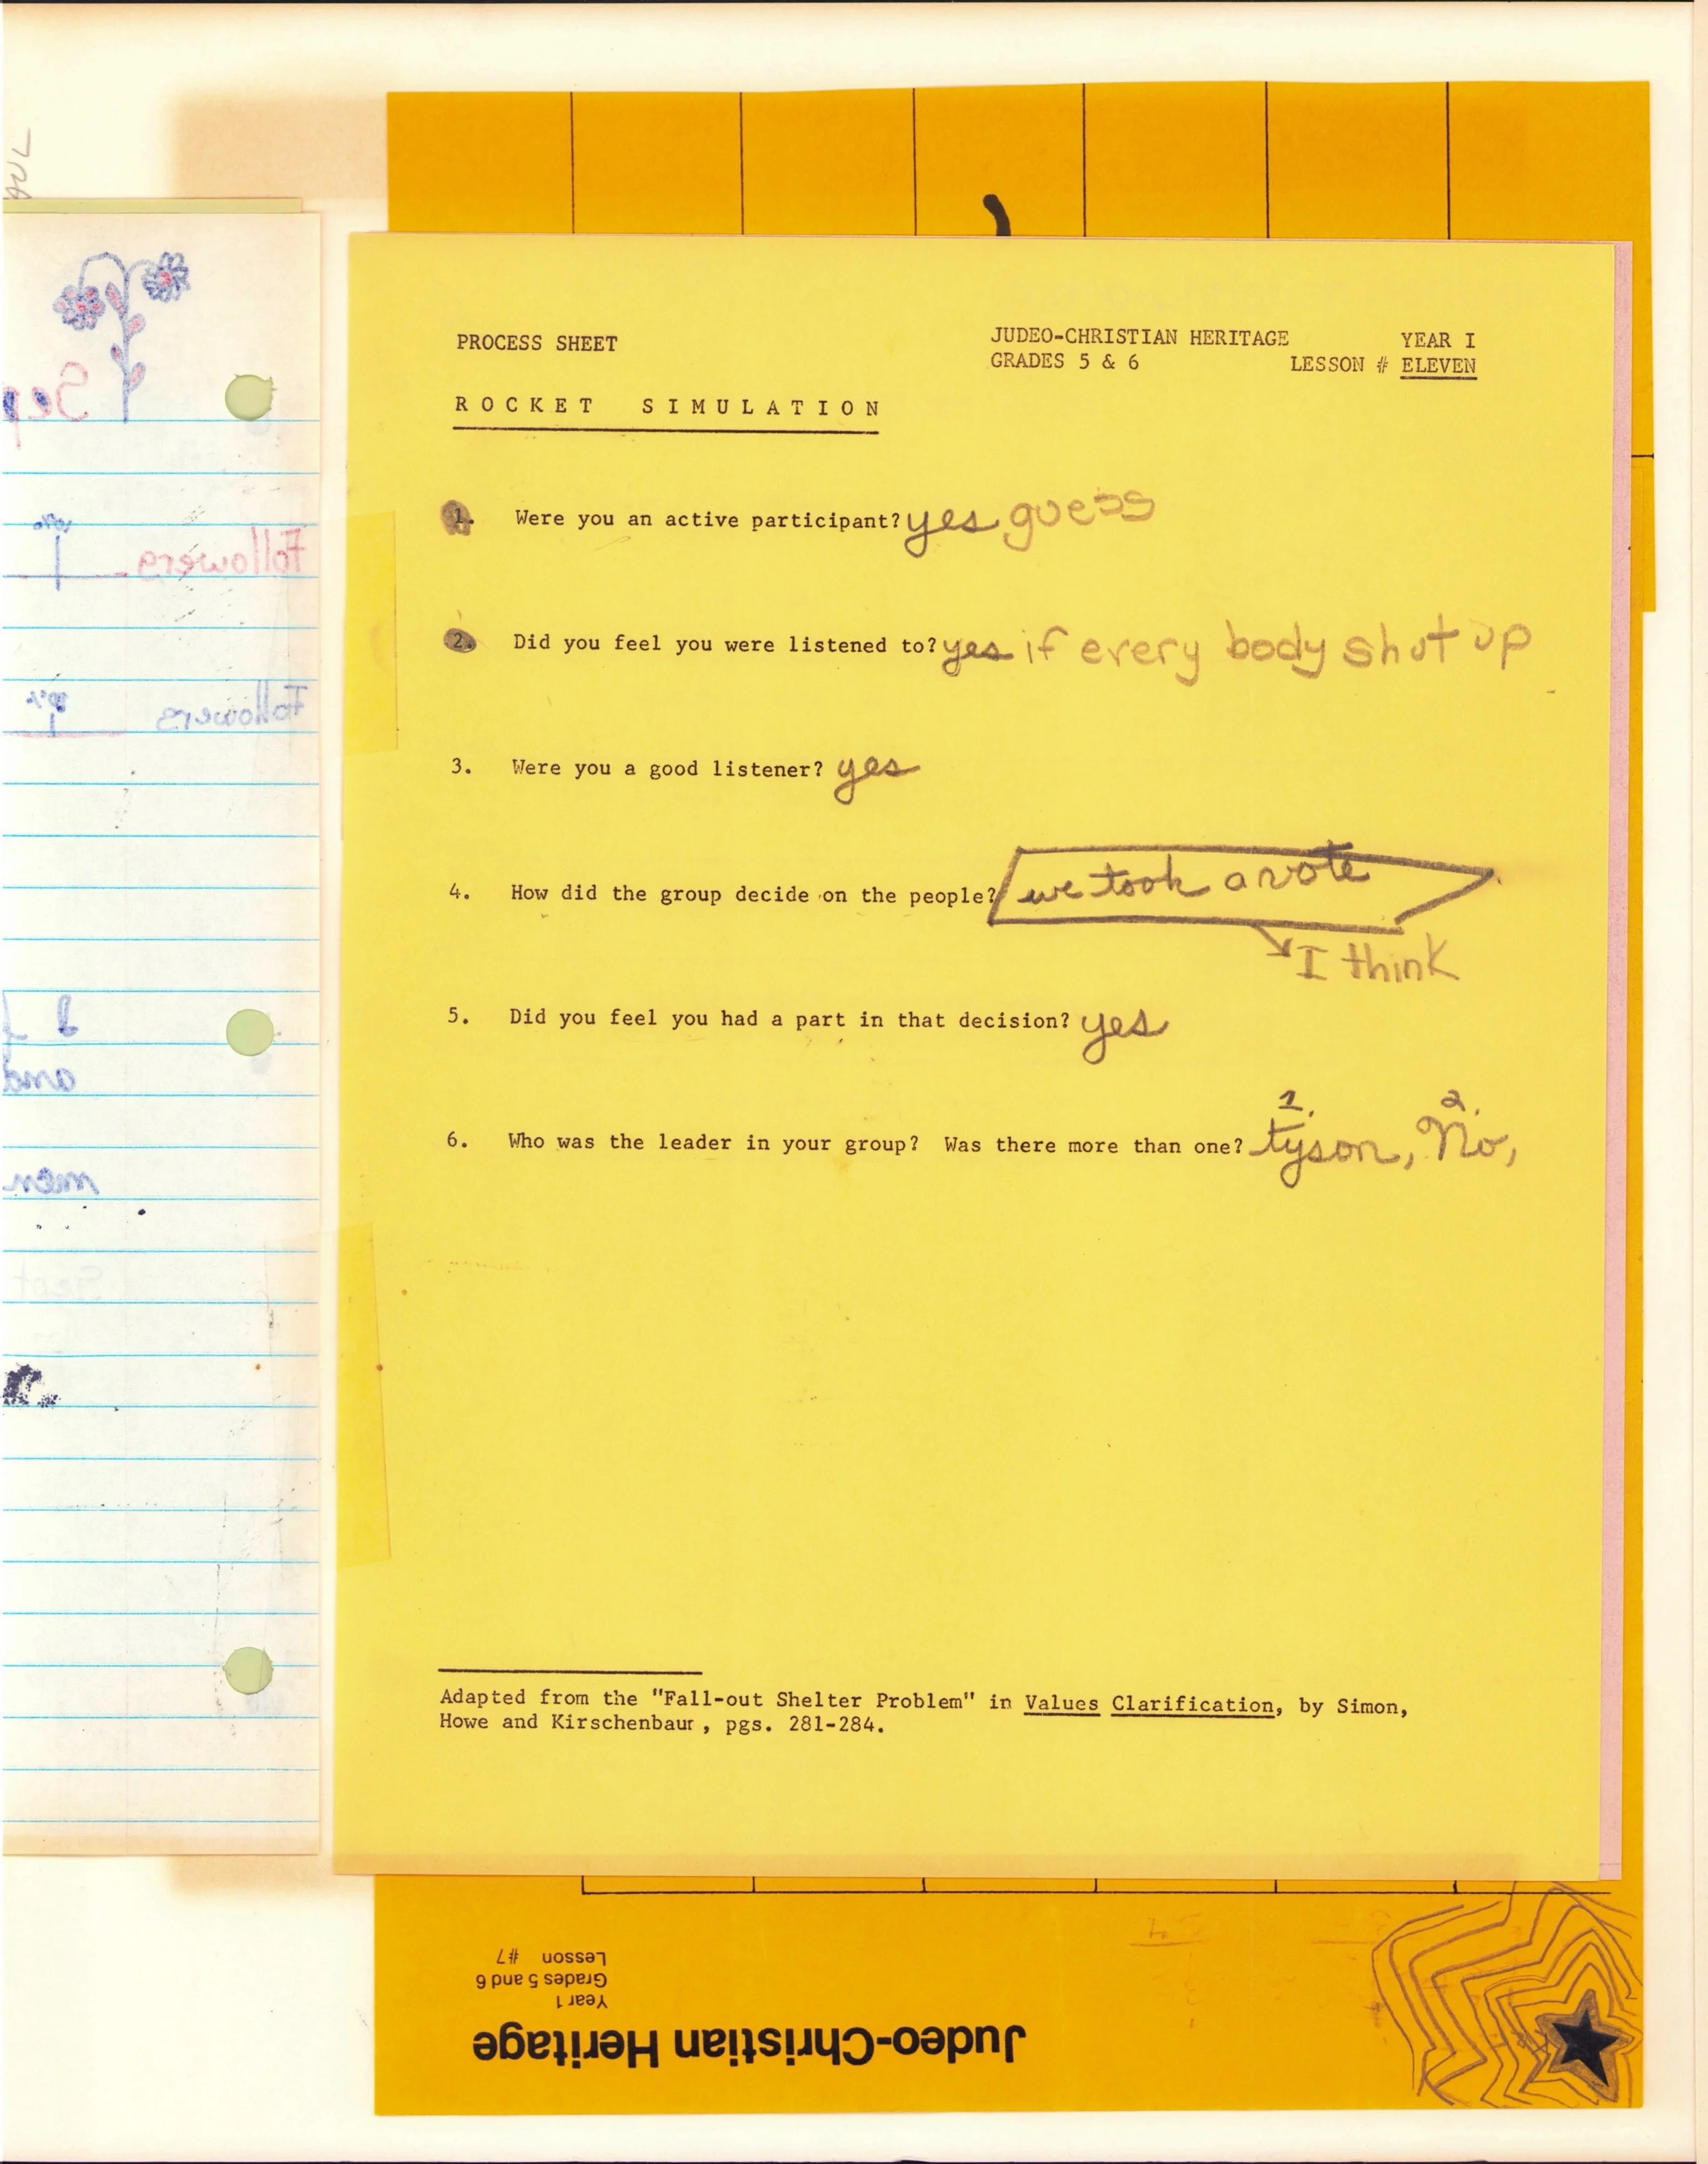 PROCESS SHEET
JUDEO-CHRISTIAN HERITAGE YEAR I
GRADES 5 & 6 LESSON # ELEVEN
ROCKET SIMULATION
1. Were you an active participant? yes guess
2. Did you feel you were listened to? yes if every body shut up
3. Were you a good listener? yes
4. How did the group decide on the people? we took a vote
I think
5. Did you feel you had a part in that decision? yes
1. 2.
6. Who was the leader in your group? Was there more than one? tyson, No,
Adapted from the "Fall-out Shelter Problem" in Values Clarification, by Simon,
Howe and Kirschenbaur, pgs. 281-284.
Sep
Followers
Followers
I
and
men
Judeo-Christian Heritage
Year 1
Grades 5 and 6
Lesson #7